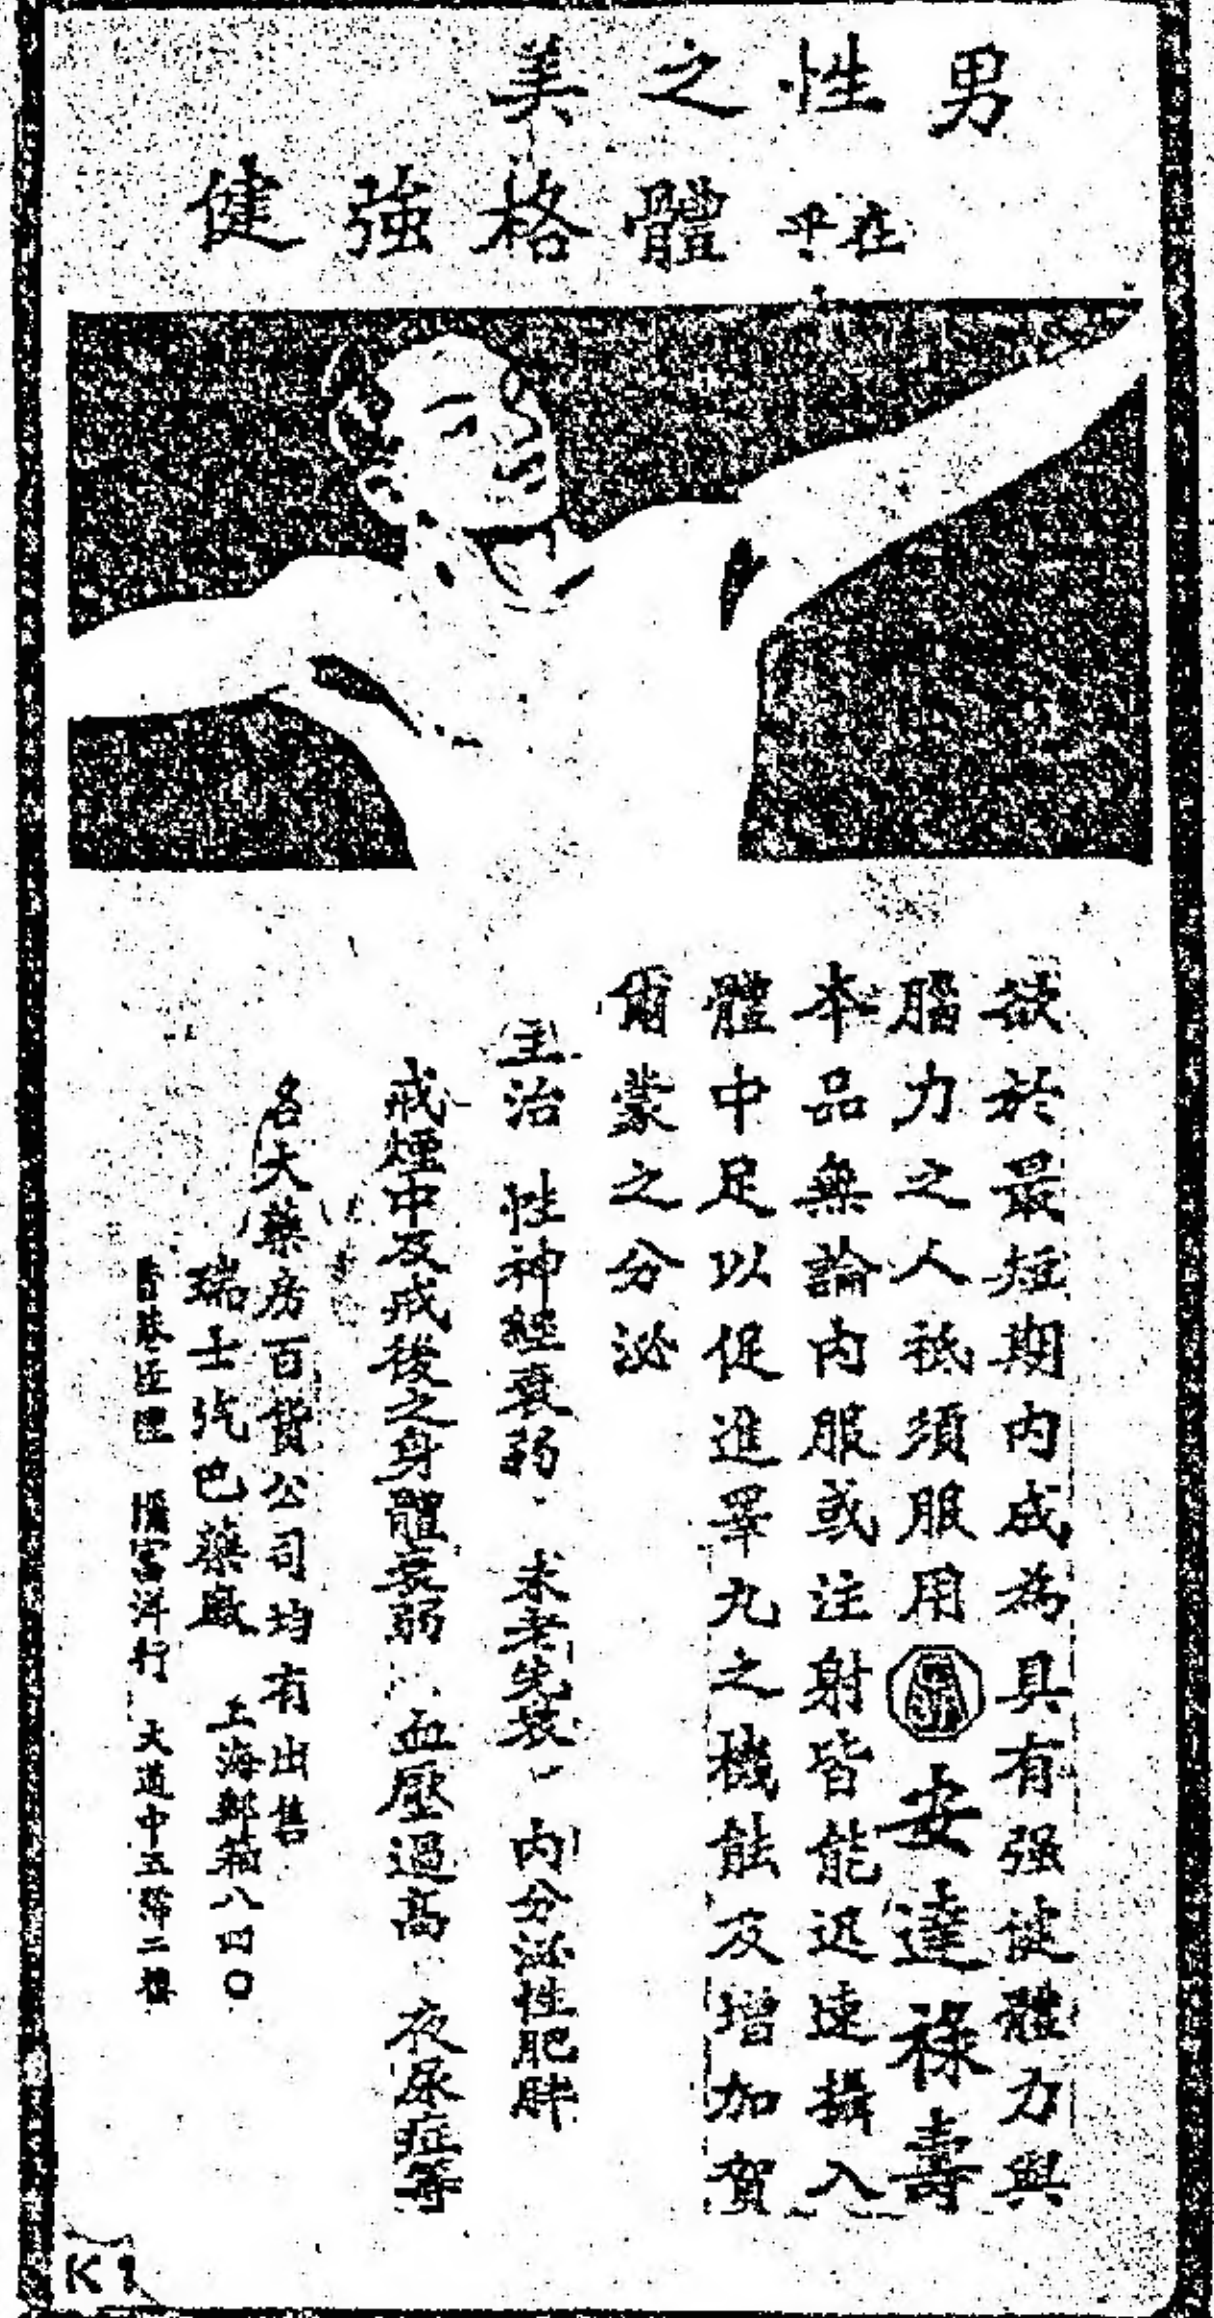 男性之美
在乎體格強健
欲於最短期内成為具有强健體力與
腦力之人祇須服用安達祿壽
本品無論内服或注射皆能迅速攝入
體中足以促進睪九之機能及增加賀
爾蒙之分泌
主治 性神經衰弱 未老先衰 内分泌性肥胖
戒煙中及戒後之身體衰弱 血壓過高 夜尿症等
各大藥房百貨公司均有出售
瑞士汽巴藥廠 上海郵箱八四〇
洋行 大道中五號二樓
K1